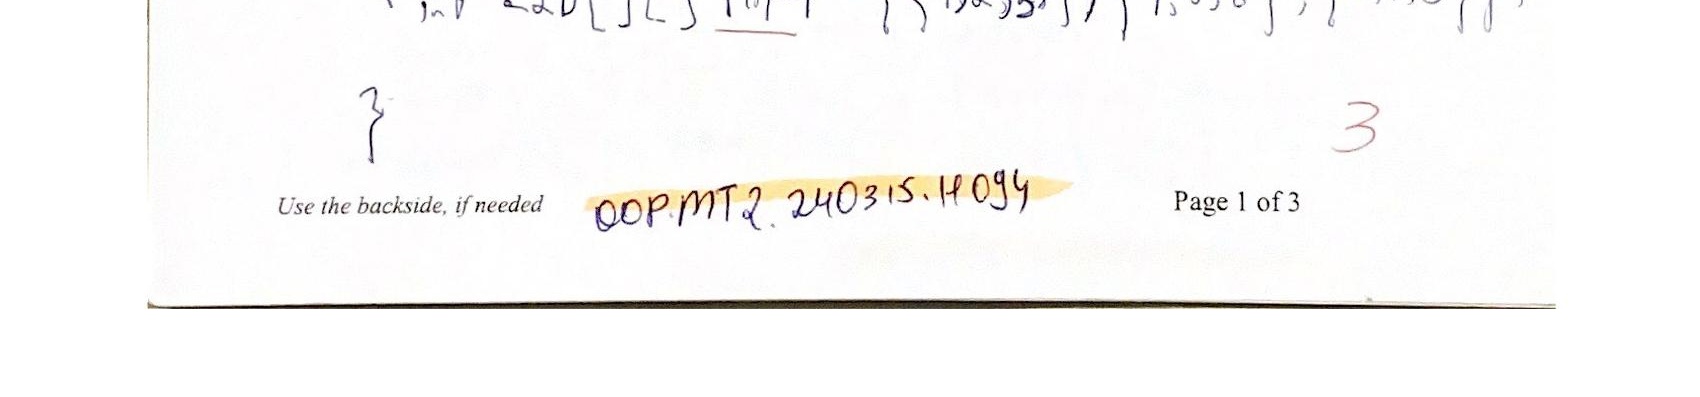 }
3
Use the backside, if needed OOP.MT2.240315.H094 Page 1 of 3